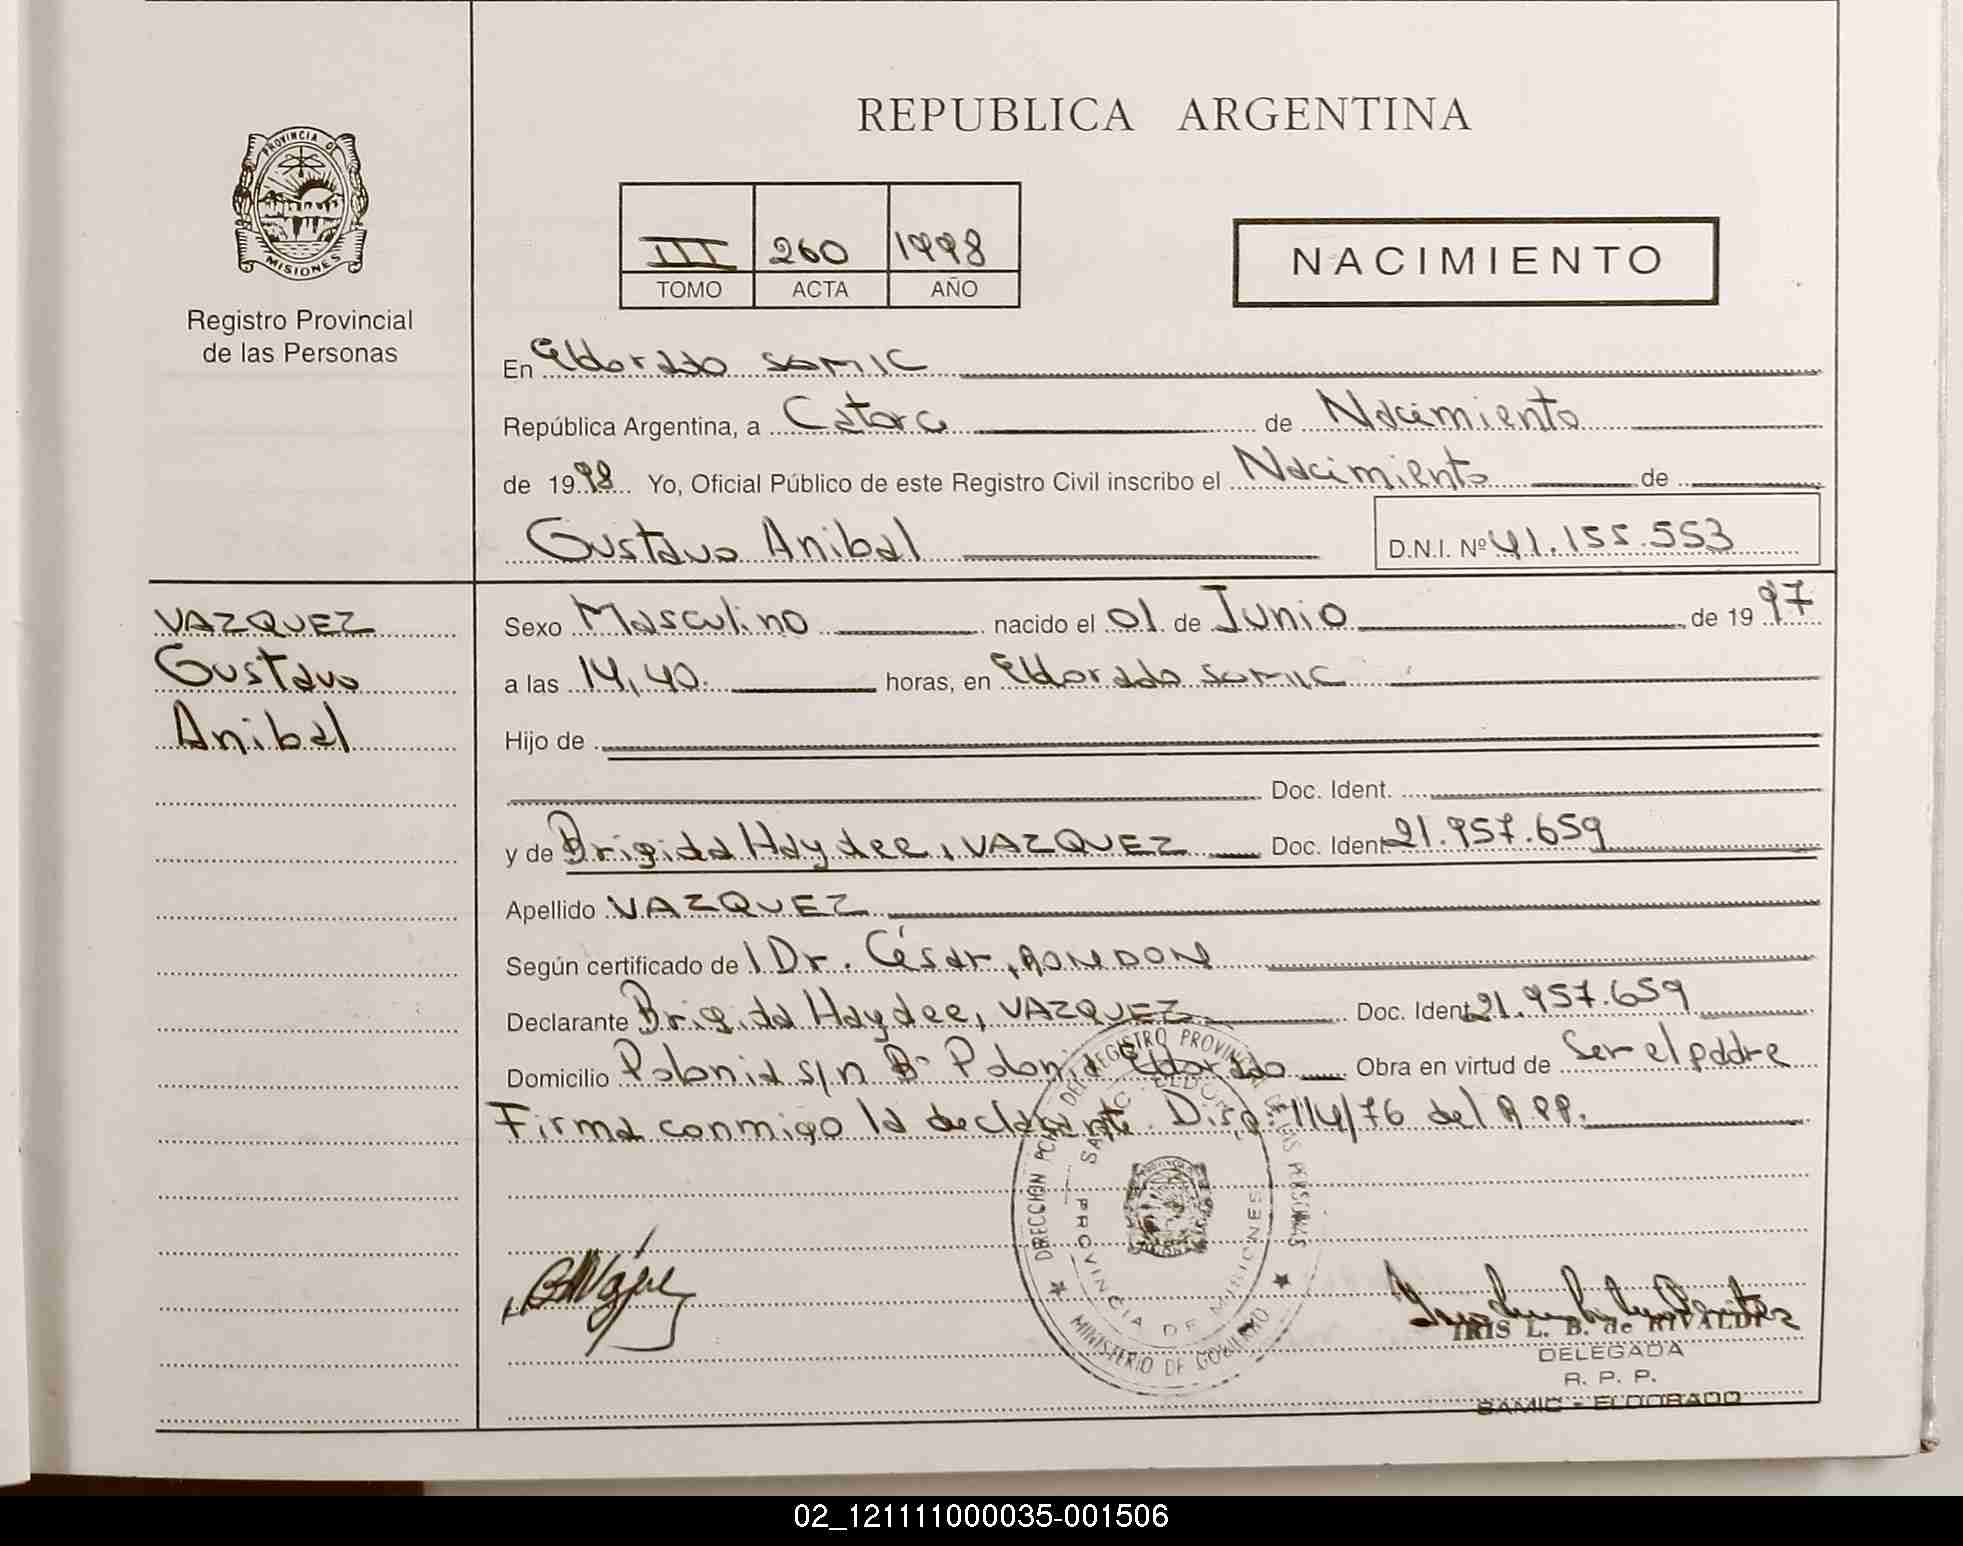 REPUBLICA ARGENTINA
PROVINCIA DE
MISIONES
Registro Provincial
de las Personas
III 260 1998
TOMO ACTA AÑO
NACIMIENTO
En Eldorado SAMIC
República Argentina, a Catorce de Nacimiento
de 1998 Yo, Oficial Público de este Registro Civil inscribo el Nacimiento de
Gustavo Anibal D.N.I. Nº 41.155.553
VAZQUEZ
Gustavo
Anibal
Sexo Masculino nacido el 01 de Junio de 1997
a las 14,40. horas, en Eldorado SAMIC
Hijo de
Doc. Ident.
y de Brigida Haydee, VAZQUEZ Doc. Ident 21.957.659
Apellido VAZQUEZ
Según certificado de l Dr. César, RONDON
Declarante Brigida Haydee, VAZQUEZ Doc. Ident 21.957.659
Domicilio Polonia s/n Bº Polonia Eldorado Obra en virtud de Ser el padre
Firma conmigo la declarante. Disp. 114/76 del R.P.P.
DIRECCION PCIAL DEL REGISTRO PROVINCIAL DE LAS PERSONAS
SAMIC - ELDORADO
PROVINCIA DE MISIONES
MINISTERIO DE GOBIERNO
IRIS L. B. de RIVALDI
DELEGADA
R. P. P.
SAMIC - ELDORADO
02_121111000035-001506